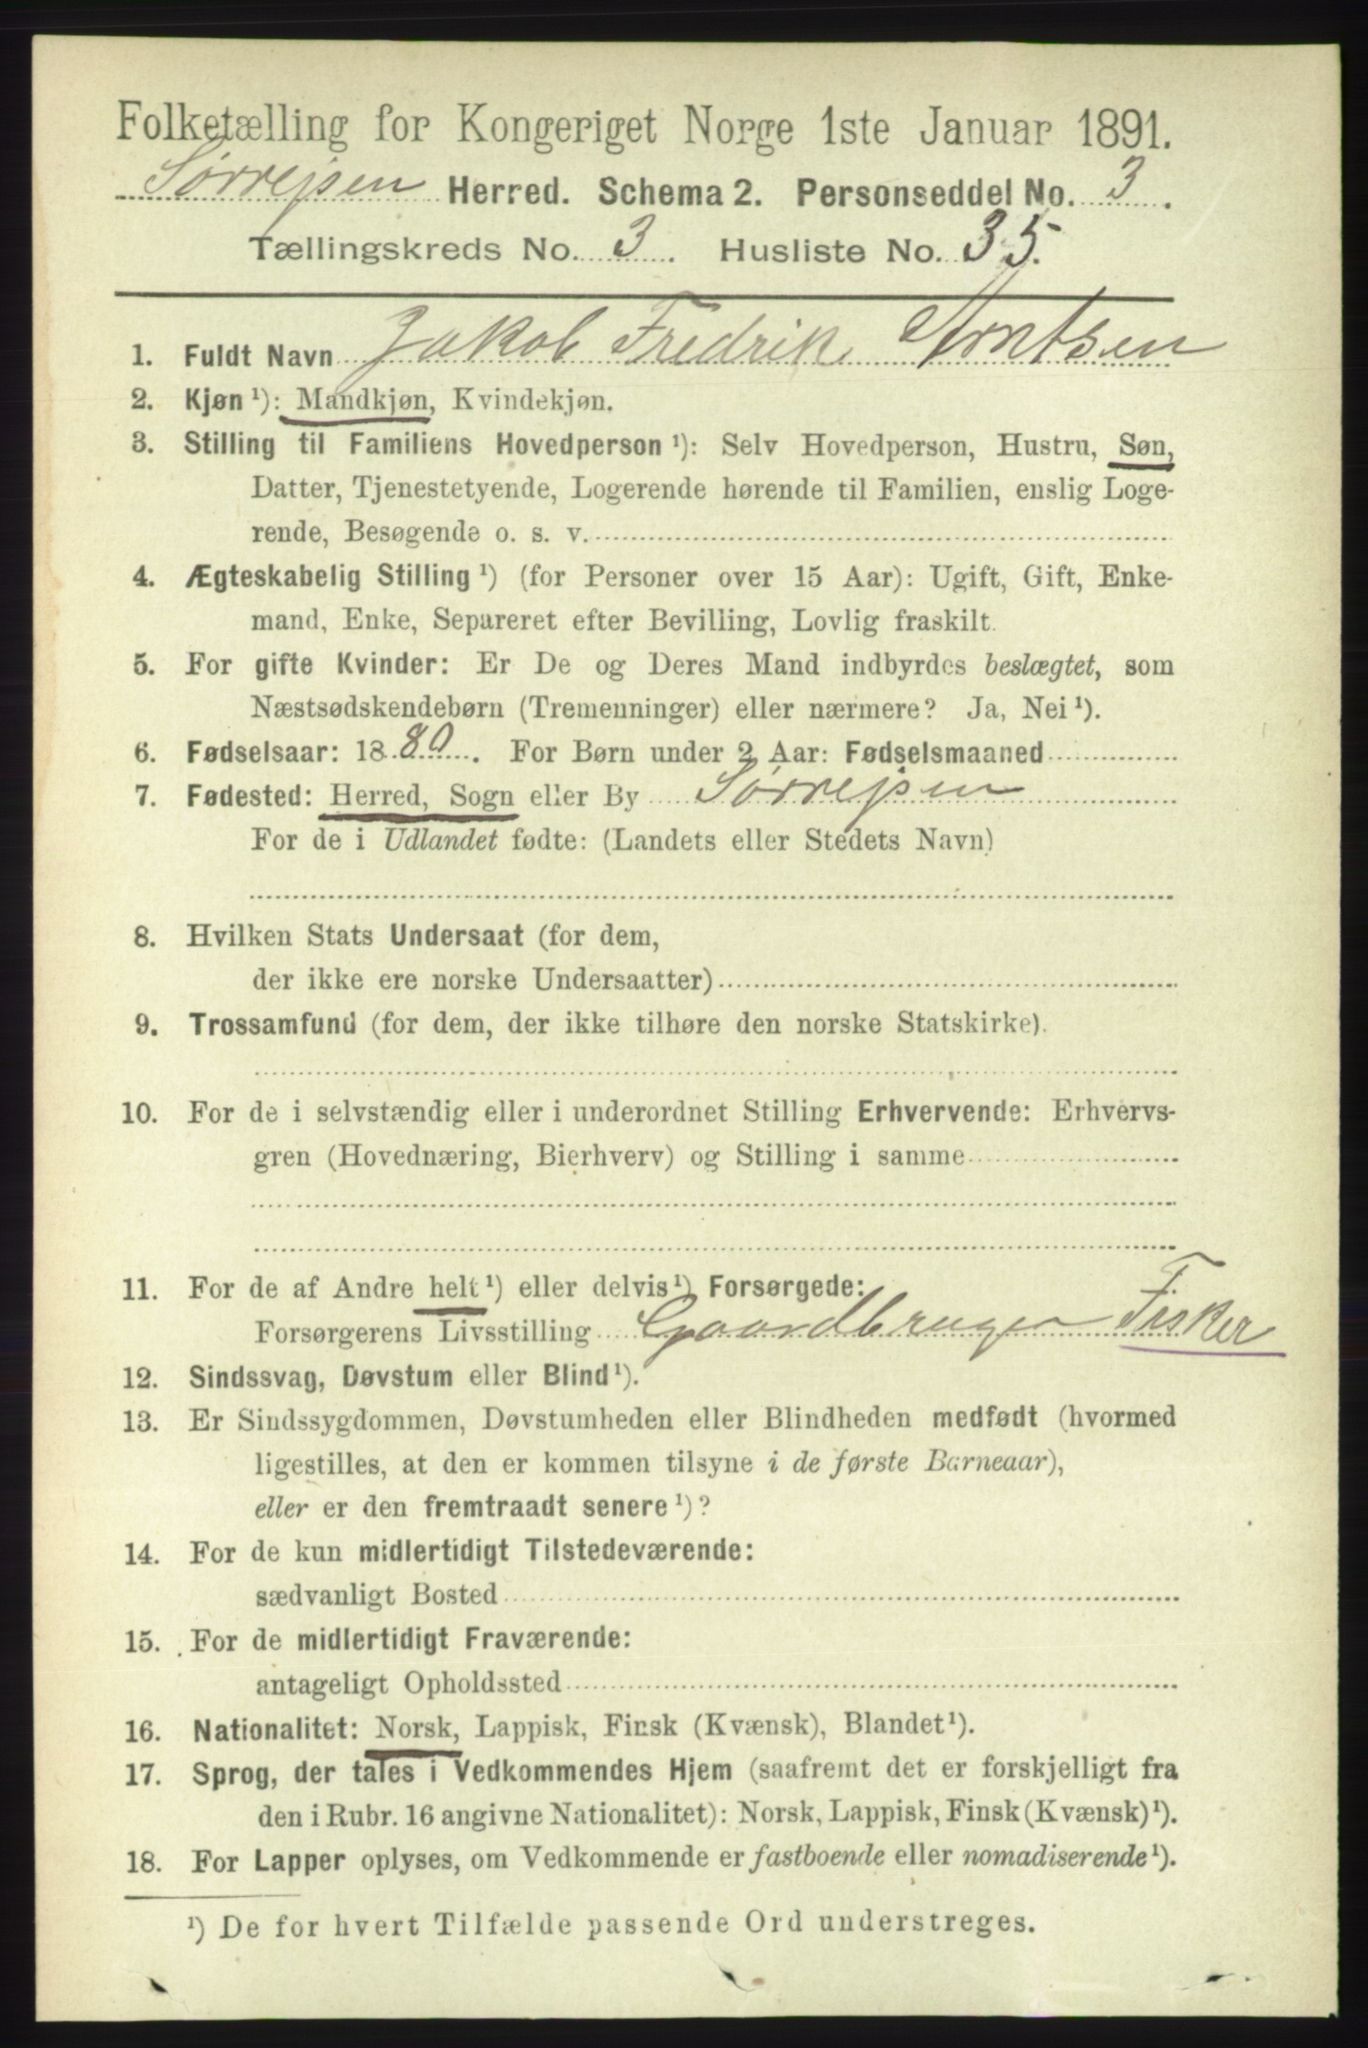 Folketælling for Kongeriget Norge 1ste Januar 1891.
Sørrejsen Herred. Schema 2. Personseddel No. 3.
Tællingskreds No. 3. Husliste No. 35.
1. Fuldt Navn Jakob Fredrik Arntsen
2. Kjøn ¹): Mandkjøn, Kvindekjøn.
3. Stilling til Familiens Hovedperson ¹): Selv Hovedperson, Hustru, Søn,
Datter, Tjenestetyende, Logerende hørende til Familien, enslig Loge-
rende, Besøgende o. s. v.
4. Ægteskabelig Stilling ¹) (for Personer over 15 Aar): Ugift, Gift, Enke-
mand, Enke, Separeret efter Bevilling, Lovlig fraskilt.
5. For gifte Kvinder: Er De og Deres Mand indbyrdes beslægtet, som
Næstsødskendebørn (Tremenninger) eller nærmere? Ja, Nei ¹).
6. Fødselsaar: 1880. For Børn under 2 Aar: Fødselsmaaned
7. Fødested: Herred, Sogn eller By Sørrejsen
For de i Udlandet fødte: (Landets eller Stedets Navn)
8. Hvilken Stats Undersaat (for dem,
der ikke ere norske Undersaatter)
9. Trossamfund (for dem, der ikke tilhøre den norske Statskirke).
10. For de i selvstændig eller i underordnet Stilling Erhvervende: Erhvervs-
gren (Hovednæring, Bierhverv) og Stilling i samme
11. For de af Andre helt ¹) eller delvis ¹) Forsørgede:
Forsørgerens Livsstilling Gaardbruger Fisker
12. Sindssvag, Døvstum eller Blind ¹).
13. Er Sindssygdommen, Døvstumheden eller Blindheden medfødt (hvormed
ligestilles, at den er kommen tilsyne i de første Barneaar),
eller er den fremtraadt senere ¹)?
14. For de kun midlertidigt Tilstedeværende:
sædvanligt Bosted
15. For de midlertidigt Fraværende:
antageligt Opholdssted
16. Nationalitet: Norsk, Lappisk, Finsk (Kvænsk), Blandet ¹).
17. Sprog, der tales i Vedkommendes Hjem (saafremt det er forskjelligt fra
den i Rubr. 16 angivne Nationalitet): Norsk, Lappisk, Finsk (Kvænsk) ¹).
18. For Lapper oplyses, om Vedkommende er fastboende eller nomadiserende ¹).
¹) De for hvert Tilfælde passende Ord understreges.